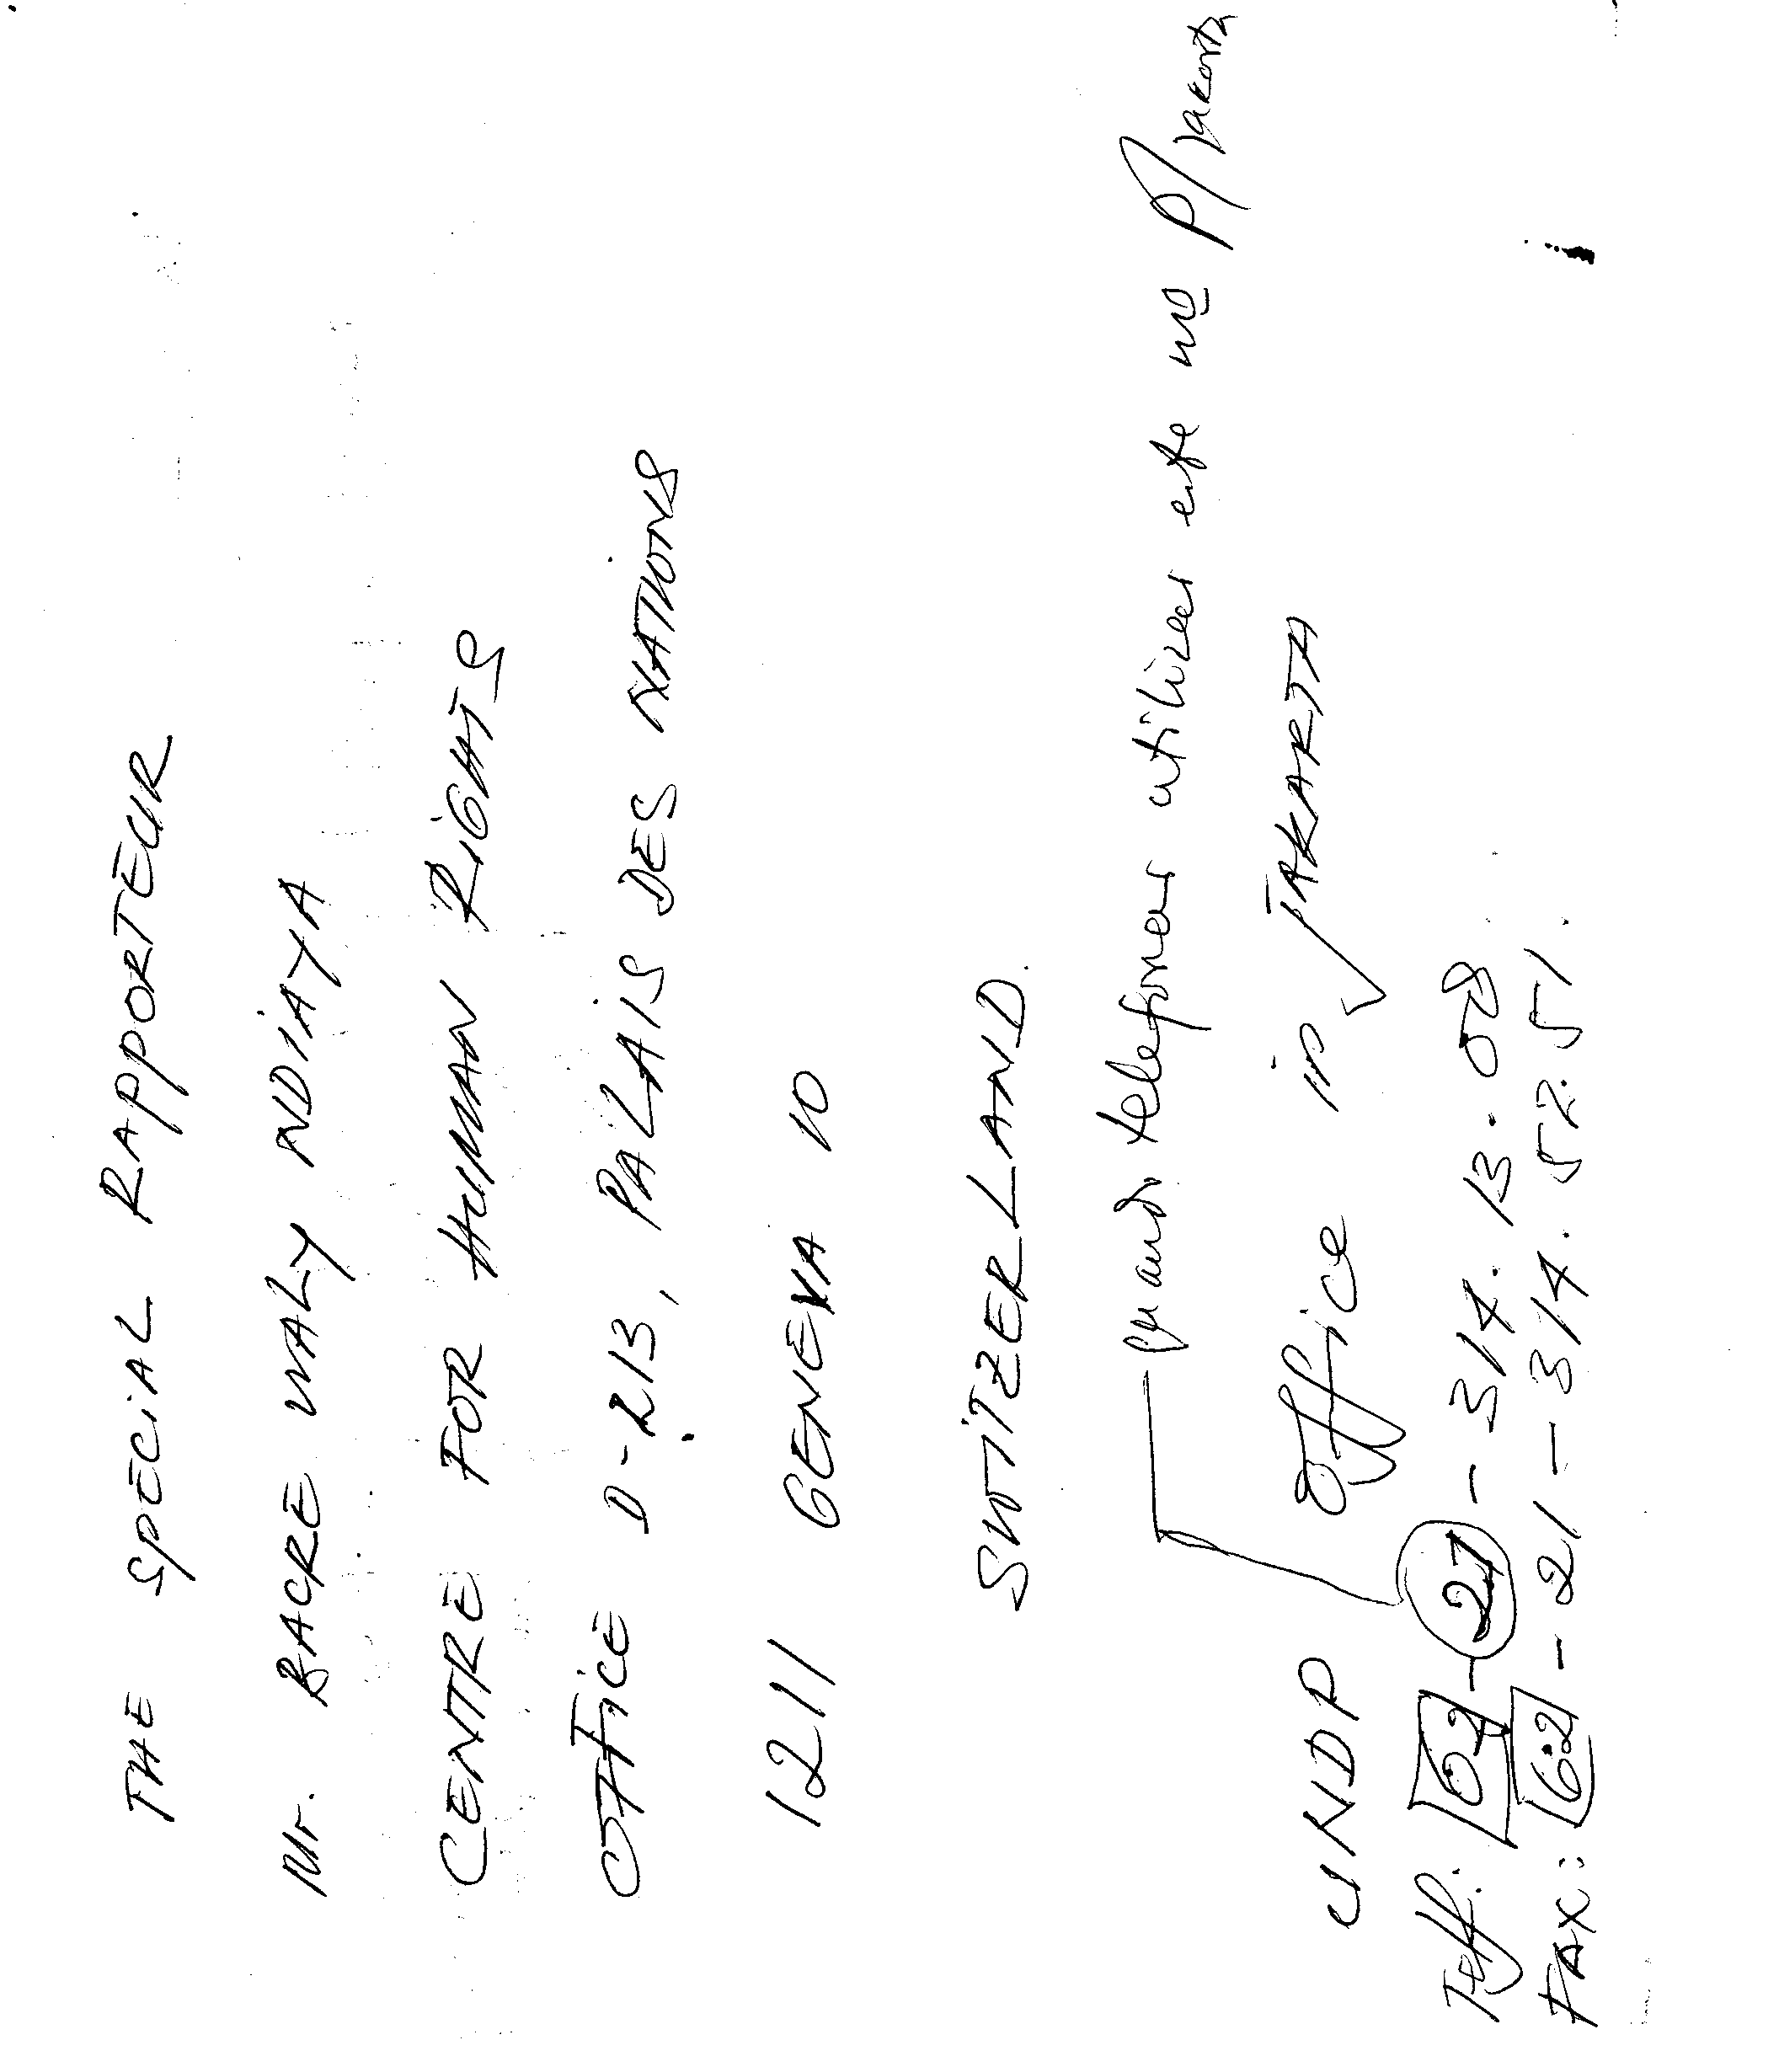 THE SPECIAL RAPPORTEUR
Mr. BACRE WALY NDIAYA
CENTRE FOR HUMAN RIGHTS
OFFICE D-213, PALAIS DES NATIONS
1211 GENEVA 10
SWITZERLAND.
quando telefonar utilizar este nº p/ Jakarta
UNDP office in JAKARTA
Telf: 62 - 21 - 314. 13. 08
FAX: 62 - 21 - 314. 52. 51.